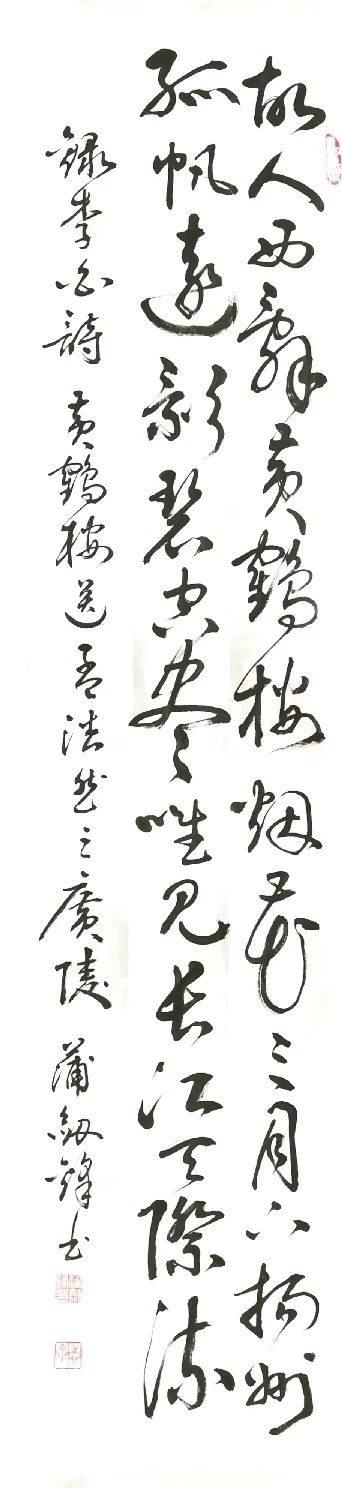 故人西辭黄鶴樓烟花三月下揚州
孤帆遠影碧空尽唯见长江天際流
錄李白詩黄鶴樓送孟浩然之廣陵 蒲劔鋒书